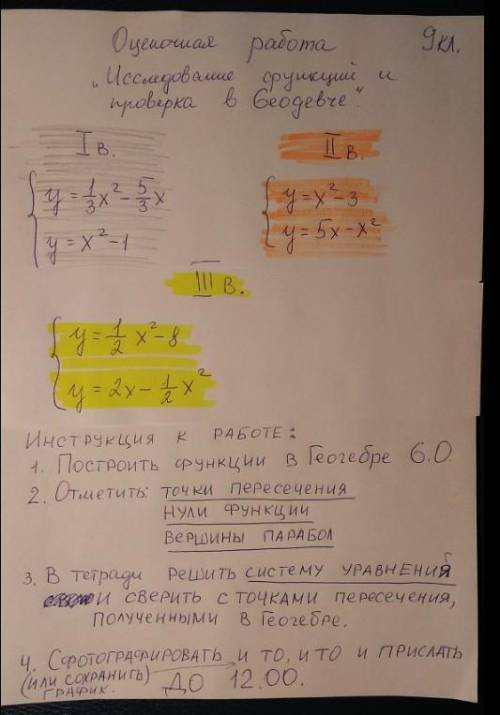 Оценочная работа 9кл.
„Исследование функций и
проверка в Геогебре“.
I в.
y = 1/3 x² - 5/3 x
y = x² - 1
II в.
y = x² - 3
y = 5x - x²
III в.
y = 1/2 x² - 8
y = 2x - 1/2 x²
Инструкция к работе:
1. Построить функции в Геогебре 6.0
2. Отметить: точки пересечения
нули функции
вершины парабол
3. В тетради решить систему уравнений
и сверить с точками пересечения,
полученными в Геогебре.
4. Сфотографировать и то, и то и прислать
(или сохранить) до 12.00.
график.